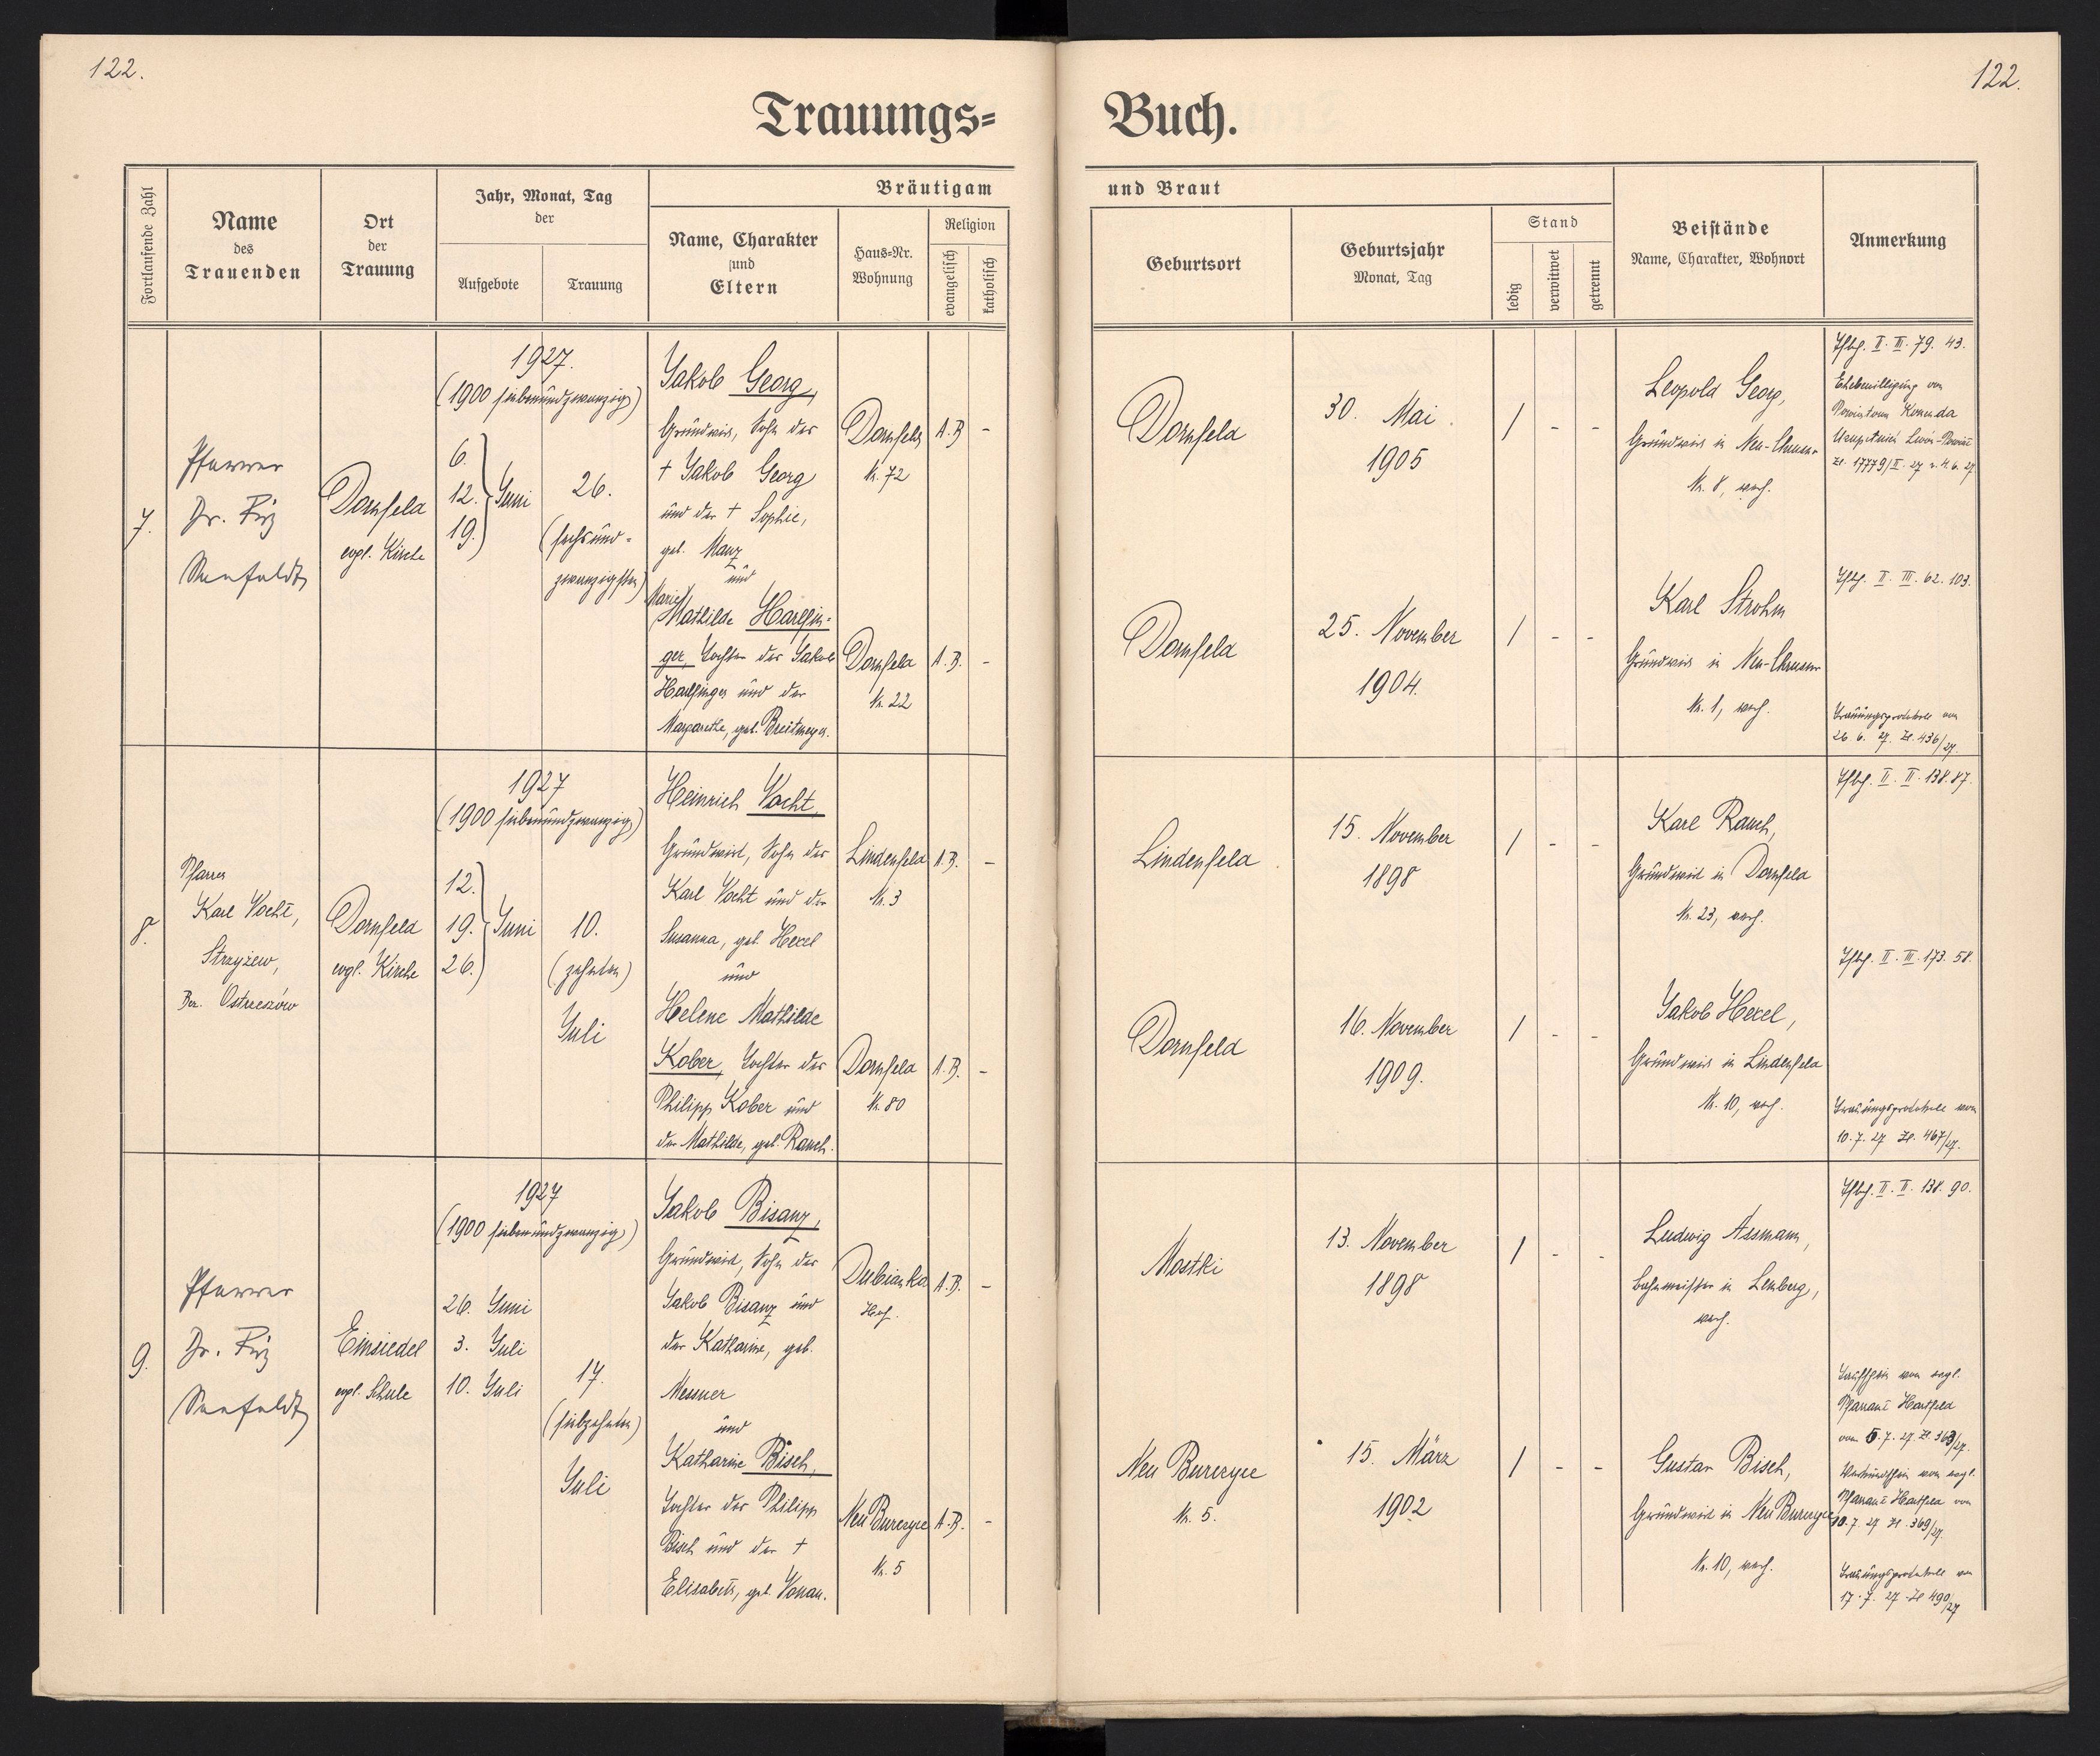 122.
122.
Trauungs=
Buch.
Fortlaufende Zahl
Name
des
Trauenden
Ort
der
Trauung
Jahr, Monat, Tag
der
Aufgebote
Trauung
Bräutigam
Name, Charakter
und
Eltern
Haus=Nr.
Wohnung
Religion
evangelisch
katholisch
und Braut
Geburtsort
Geburtsjahr
Monat, Tag
Stand
ledig
verwitwet
getrennt
Beistände
Name, Charakter, Wohnort
Anmerkung
7.
Pfarrer
Dr. Fritz
Seefeldt
Dornfeld
evgl. Kirche
1927.
(1900 siebenundzwanzig)
6.
12. Juni
19.
26.
(sechsund-
zwanzigsten)
Jakob Georg,
Grundwirt, Sohn des
+ Jakob Georg
und der + Sophie,
geb. Manz
und
Marie
Mathilde Harlfin-
ger, Tochter des Jakob
Harlfinger und der
Margarethe, geb. Breitmeyer.
Dornfeld
Nr. 72
A.B.
-
Dornfeld
Nr. 22
A.B.
-
Dornfeld
30. Mai
1905
/ - -
Leopold Georg,
Grundwirt in Neu-Chrusno
Nr. 8, evgl.
II. III. 79. 43.
Ehebewilligung von
Powiatowa Komenda
Uzupełnień Lwów-Powiat
Zl. 17779/II. 27
Dornfeld
25. November
1904.
/ - -
Karl Strohm
Grundwirt in Neu-Chrusno
Nr. 1, evgl.
II. III. 62. 103.
Trauungsprotokoll vom
26. 6. 27. Zl. 436/27.
8.
Pfarrer
Karl Vocht,
Strzyżew,
Bez. Ostrzeszów
Dornfeld
evgl. Kirche
1927
(1900 siebenundzwanzig)
12.
19. Juni
26.
10.
(zehnten)
Juli
Heinrich Vocht,
Grundwirt, Sohn des
Karl Vocht und der
Susanna, geb. Hexel
und
Helene Mathilde
Kober, Tochter des
Philipp Kober und
der Mathilde, geb. Rauch.
Lindenfeld
Nr. 3
A.B.
-
Dornfeld
Nr. 80
A.B.
-
Lindenfeld
15. November
1898
/ - -
Karl Rauch,
Grundwirt in Dornfeld
Nr. 23, evgl.
II. II. 138. 87.
Dornfeld
16. November
1909.
/ - -
Jakob Hexel,
Grundwirt in Lindenfeld
Nr. 10, evgl.
II. III. 173. 58.
Trauungsprotokoll vom
10. 7. 27 Zl. 467/27.
9.
Pfarrer
Dr. Fritz
Seefeldt
Einsiedel
evgl. Schule
1927
(1900 siebenundzwanzig)
26. Juni
3. Juli
10. Juli
17.
(siebzehnten)
Juli
Jakob Bisanz,
Grundwirt, Sohn des
Jakob Bisanz und
der Katharine, geb.
Messner
und
Katharine Bisch,
Tochter des Philipp
Bisch und der +
Elisabeth, geb. Vonau.
Dubianka
Hof.
A.B.
-
Neu Burczyce
Nr. 5
A.B.
-
Mostki
13. November
1898
/ - -
Ludwig Assmann,
Bahnmeister in Lemberg,
evgl.
II. II. 138. 90.
Neu Burczyce
Nr. 5.
15. März
1902
/ - -
Gustav Bisch,
Grundwirt in Neu Burczyce
Nr. 10, evgl.
Taufschein vom evgl.
Pfarramt Hartfeld
vom 5. 7. 27. Zl. 363/27.
vom evgl.
Pfarramt Hartfeld vom
10. 7. 27 Zl. 369/27.
Trauungsprotokoll vom
17. 7. 27 Zl 490/27